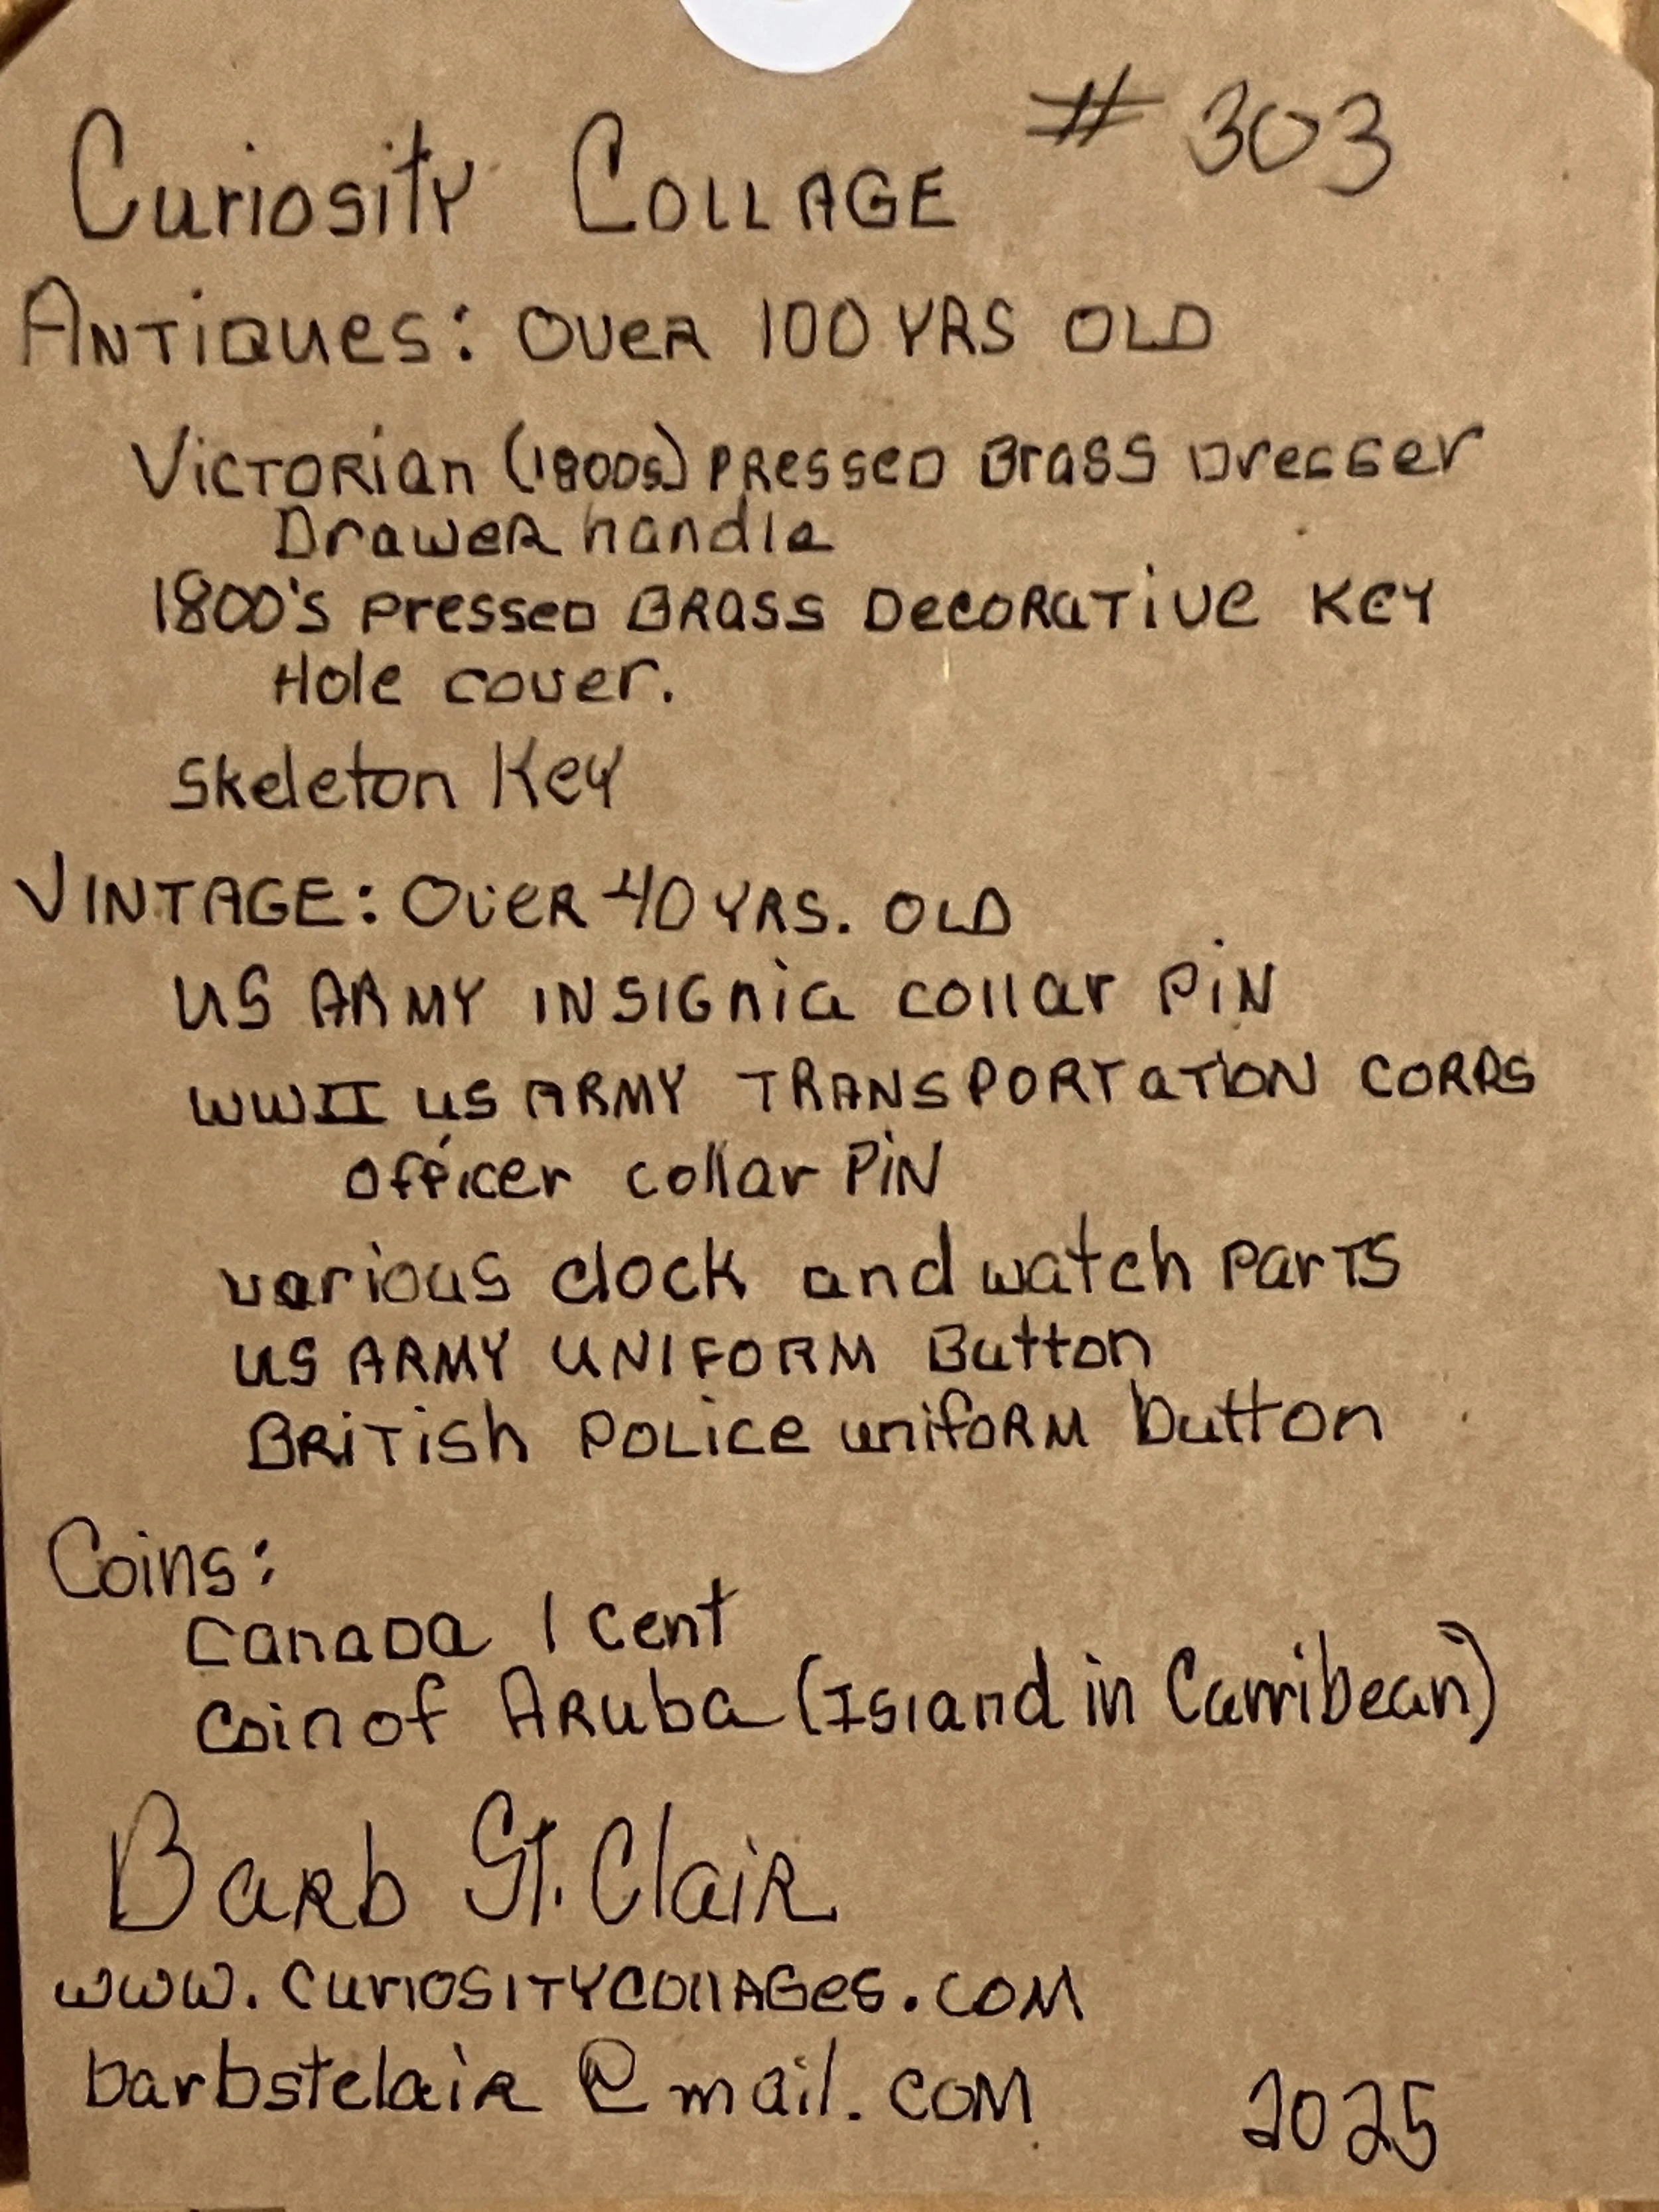 Curiosity COLLAGE # 303
ANTiQues: OVeR 100 YRS OLD
VicTORian (1800s) PRessed Brass Dresser
DraweR handle
1800's Pressed BRass DecoRaTive Key
Hole cover.
Skeleton Key
VINTAGE: OveR 40 YRS. OLD
US ARMY INSIGnia collar PiN
WWII US ARMY TRANSPORTaTiON CORPS
Officer collar PiN
various clock and watch parTS
US ARMY UNIFORM Button
BRiTish POLice unifoRM button
Coins:
Canada 1 Cent
Coin of ARuba (Island in Carribean)
BaRb St. ClaiR
www.CuriOSITYCOllAGes.COM
barbstclaiR@mail.COM 2025